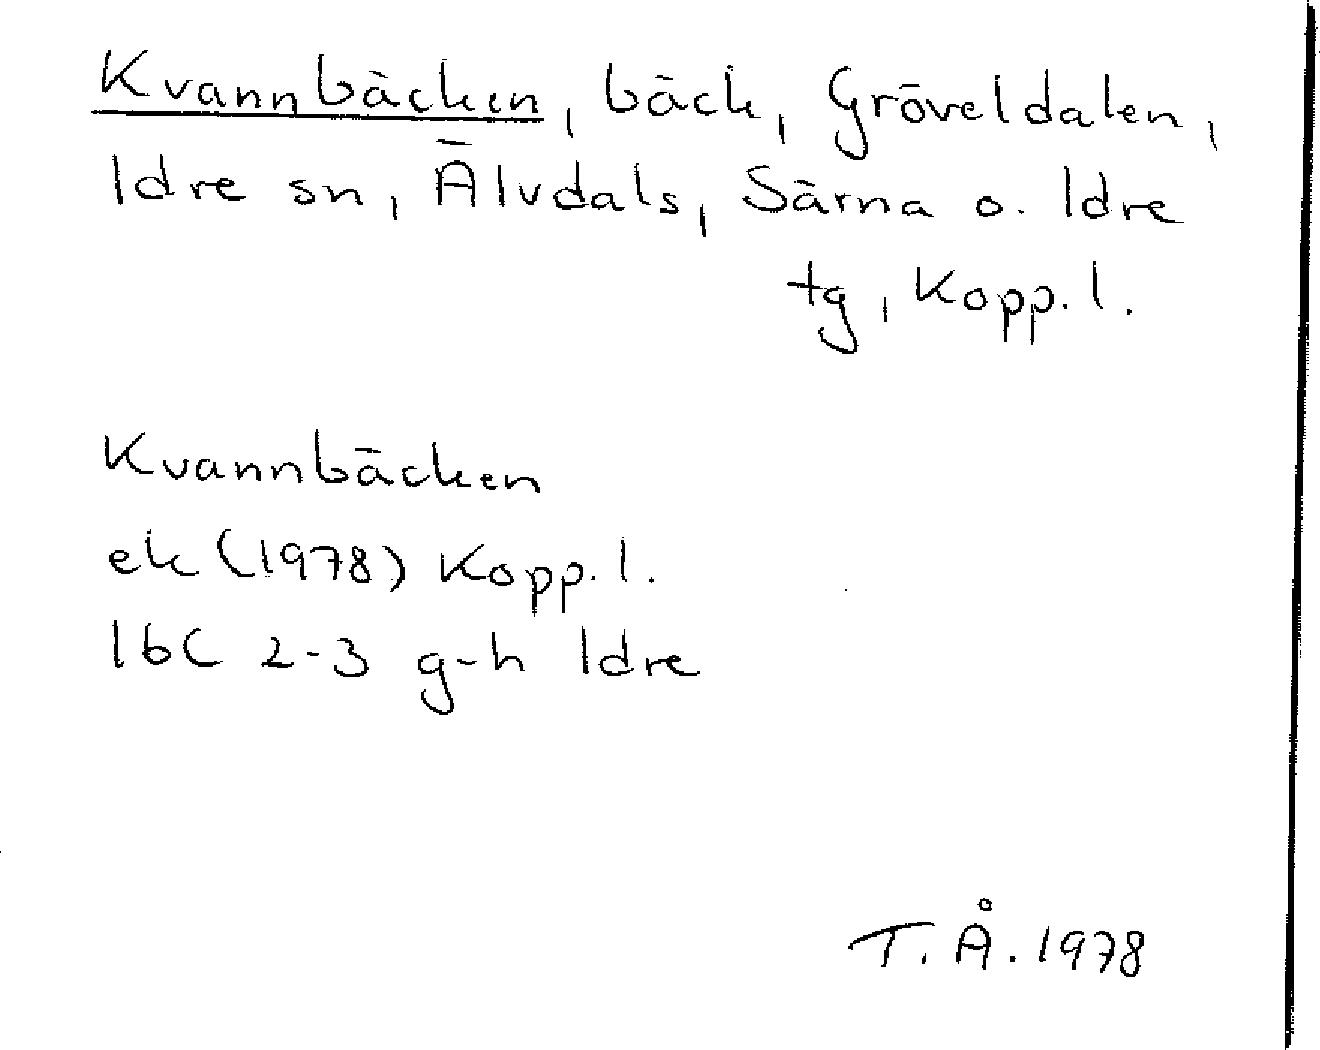 Kvannbäcken, bäck, Gröveldalen,
Idre sn, Älvdals, Särna o. Idre
tg, Kopp. l.
Kvannbäcken
ek (1978) Kopp. l.
16C 2-3 g-h Idre
T. Å. 1978